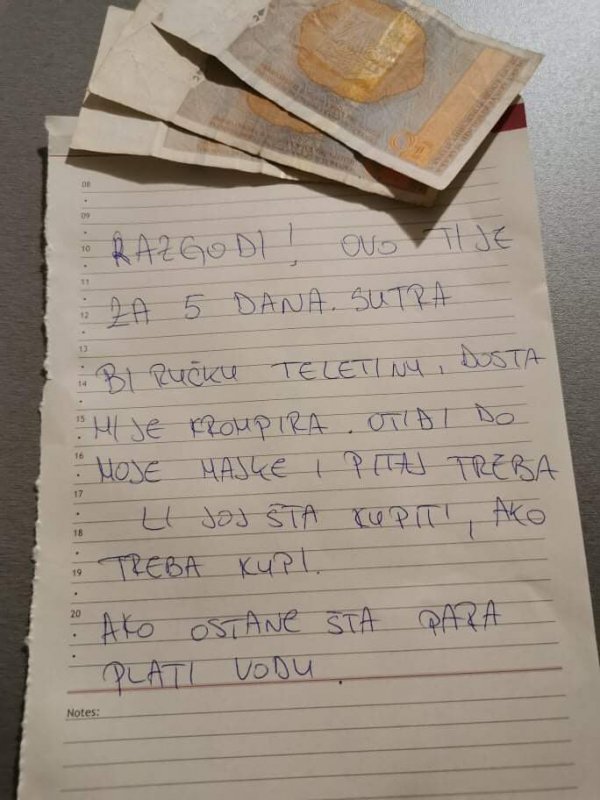 08
09
10 RAZGODI! OVO TI JE
11
12 ZA 5 DANA. SUTRA
13
14 BI RUČKU TELETINU, DOSTA
15 MI JE KROMPIRA. OTIĐI DO
16 MOJE MAJKE I PITAJ TREBA
17
18 LI JOJ ŠTA KUPITI, AKO
19 TREBA KUPI.
20 AKO OSTANE ŠTA PARA
PLATI VODU.
Notes: